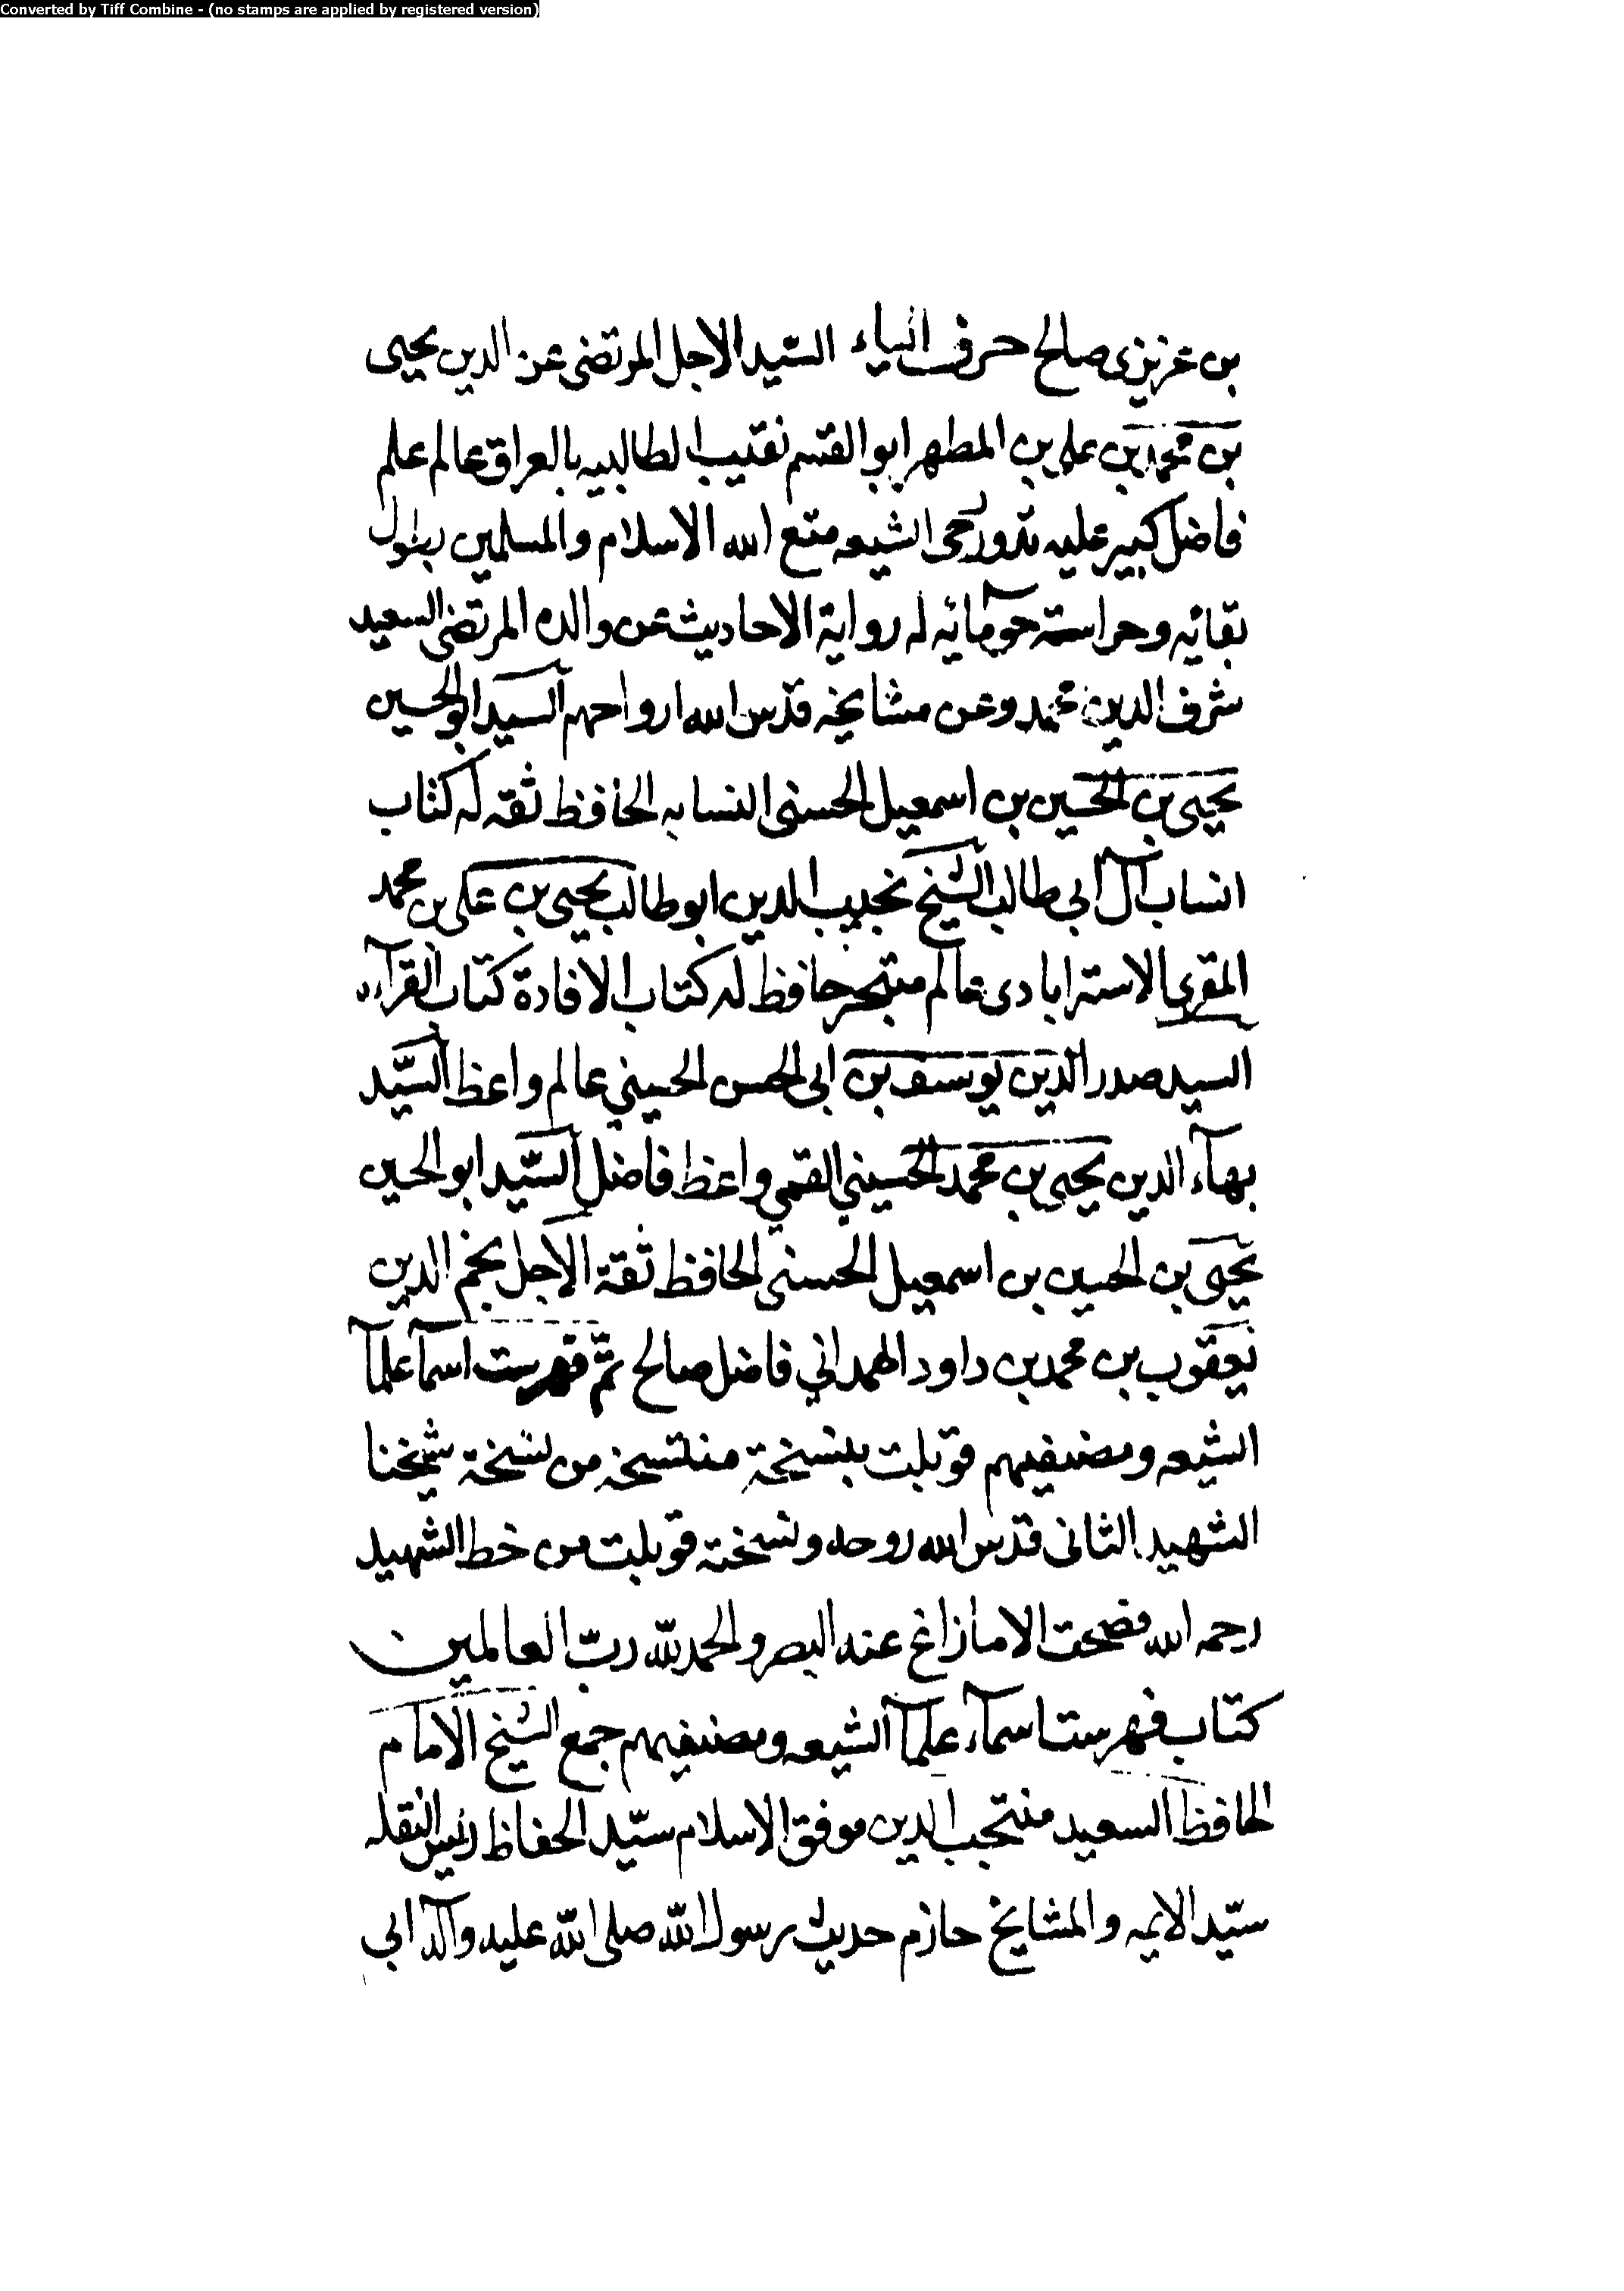 Converted by Tiff Combine - (no stamps are applied by registered version)
بن عزيزى صالح حرف الياء السّيد الاجل المرتضى عز الدين يحيى
بن محمد بن على بن المطهر ابو القسم نقيب الطالبيه بالعراق عالم علم
فاضل كبير عليه تدور رحى الشيعه متع الله الاسلام والمسلمين بطول
بقائه وحراسة حوبائه له رواية الاحاديث عن والده المرتضى السعيد
شرف الدين محمد وعن مشايخه قدّس الله ارواحهم السيد ابو الحسين
يحيى بن الحسين بن اسمعيل الحسنى النسابه الحافظ ثقه له كتاب
انساب آل ابي طالب الشيخ نجيب الدين ابو طالب يحيى بن على بن محمد
المقرى الاسترابادى عالم متبحر حافظ له كتاب الافادة كتاب القرآءه
السيد صدر الدين يوسف بن ابى الحسن الحسيني عالم واعظ السّيد
بهآء الدين يحيى بن محمد الحسيني القمي واعظ فاضل السّيد ابو الحسين
يحيى بن الحسين بن اسمعيل الحسنى الحافظ ثقة الاجل نجم الدين
يعقوب بن محمد بن داود الهمداني فاضل صالح تمّ فهرست اسمآ علمآ
الشيعه ومصنفيهم قوبلت بنسخة منتسخه من نسخة شيخنا
الشهيد الثانى قدّس الله روحه ونسخته قوبلت من خط الشهيد
رحمه الله فصحت الا ما زاغ عنه البصر والحمد للّه ربّ العالمين
كتاب فهرست اسمآء علمآ الشيعه ومصنفيهم جمع الشيخ الامام
الحافظ السعيد منتجب الدين موفق الاسلام سيّد الحفاظ رئيس النقله
سيّد الايمه والمشايخ حازم حديث رسول اللّه صلى اللّه عليه وآله ابي